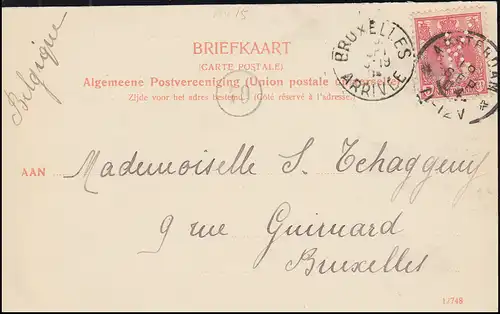 Belgique
BRIEFKAART
(CARTE POSTALE)
Algemeene Postvereeniging (Union postale universelle)
Zijde voor het adres bestemd. (Côté réservé à l'adresse)
BRUXELLES
ARRIVÉE
AMSTERDAM
AAN Mademoiselle S. Tchaggeny
9 rue Guimard
Bruxelles
1/748